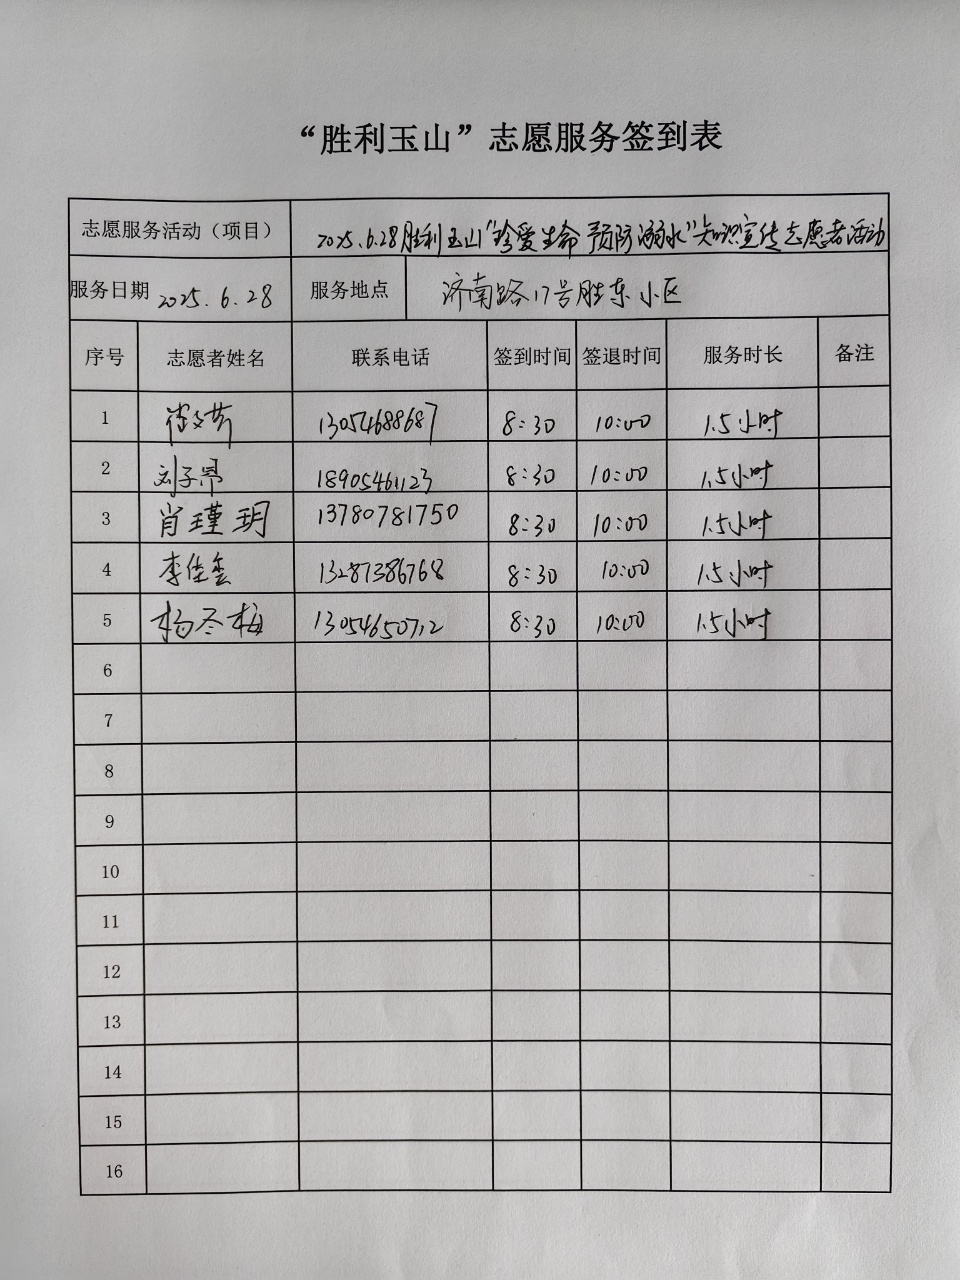 “胜利玉山”志愿服务签到表
志愿服务活动（项目） 2025.6.28胜利玉山“珍爱生命 预防溺水”知识宣传志愿者活动
服务日期 2025.6.28 服务地点 济南路17号胜东小区
序号 志愿者姓名 联系电话 签到时间 签退时间 服务时长 备注
1 13054688687 8:30 10:00 1.5小时
2 刘子昂 18905461123 8:30 10:00 1.5小时
3 肖瑾玥 13780781750 8:30 10:00 1.5小时
4 李佳玺 13287386768 8:30 10:00 1.5小时
5 杨冬梅 13054650712 8:30 10:00 1.5小时
6
7
8
9
10
11
12
13
14
15
16